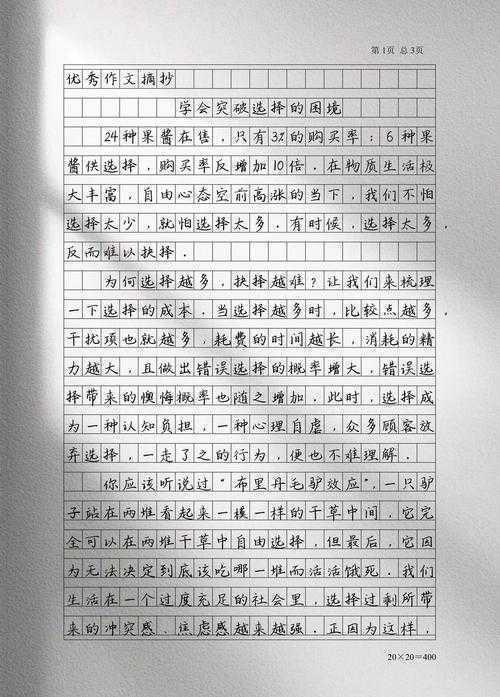 第1页 总3页
优秀作文摘抄
学会突破选择的困境
24种果酱在售，只有3%的购买率；6种果
酱供选择，购买率反增加10倍．在物质生活极
大丰富，自由心态空前高涨的当下，我们不怕
选择太少，就怕选择太多．有时候，选择太多，
反而难以抉择．
为何选择越多，抉择越难？让我们来梳理
一下选择的成本．当选择越多时，比较点越多，
干扰项也就越多，耗费的时间越长，消耗的精
力越大，且做出错误选择的概率增大，错误选
择带来的懊悔概率也随之增加．此时，选择成
为一种认知负担，一种心理自虐，众多顾客放
弃选择，一走了之的行为，便也不难理解．
你应该听说过“布里丹毛驴效应”，一只驴
子站在两堆看起来一模一样的干草中间，它完
全可以在两堆干草中自由选择，但最后，它因
为无法决定到底该吃哪一堆而活活饿死．我们
生活在一个过度充足的社会里，选择过剩所带
来的冲突感、焦虑感越来越强．正因为这样，
20×20=400